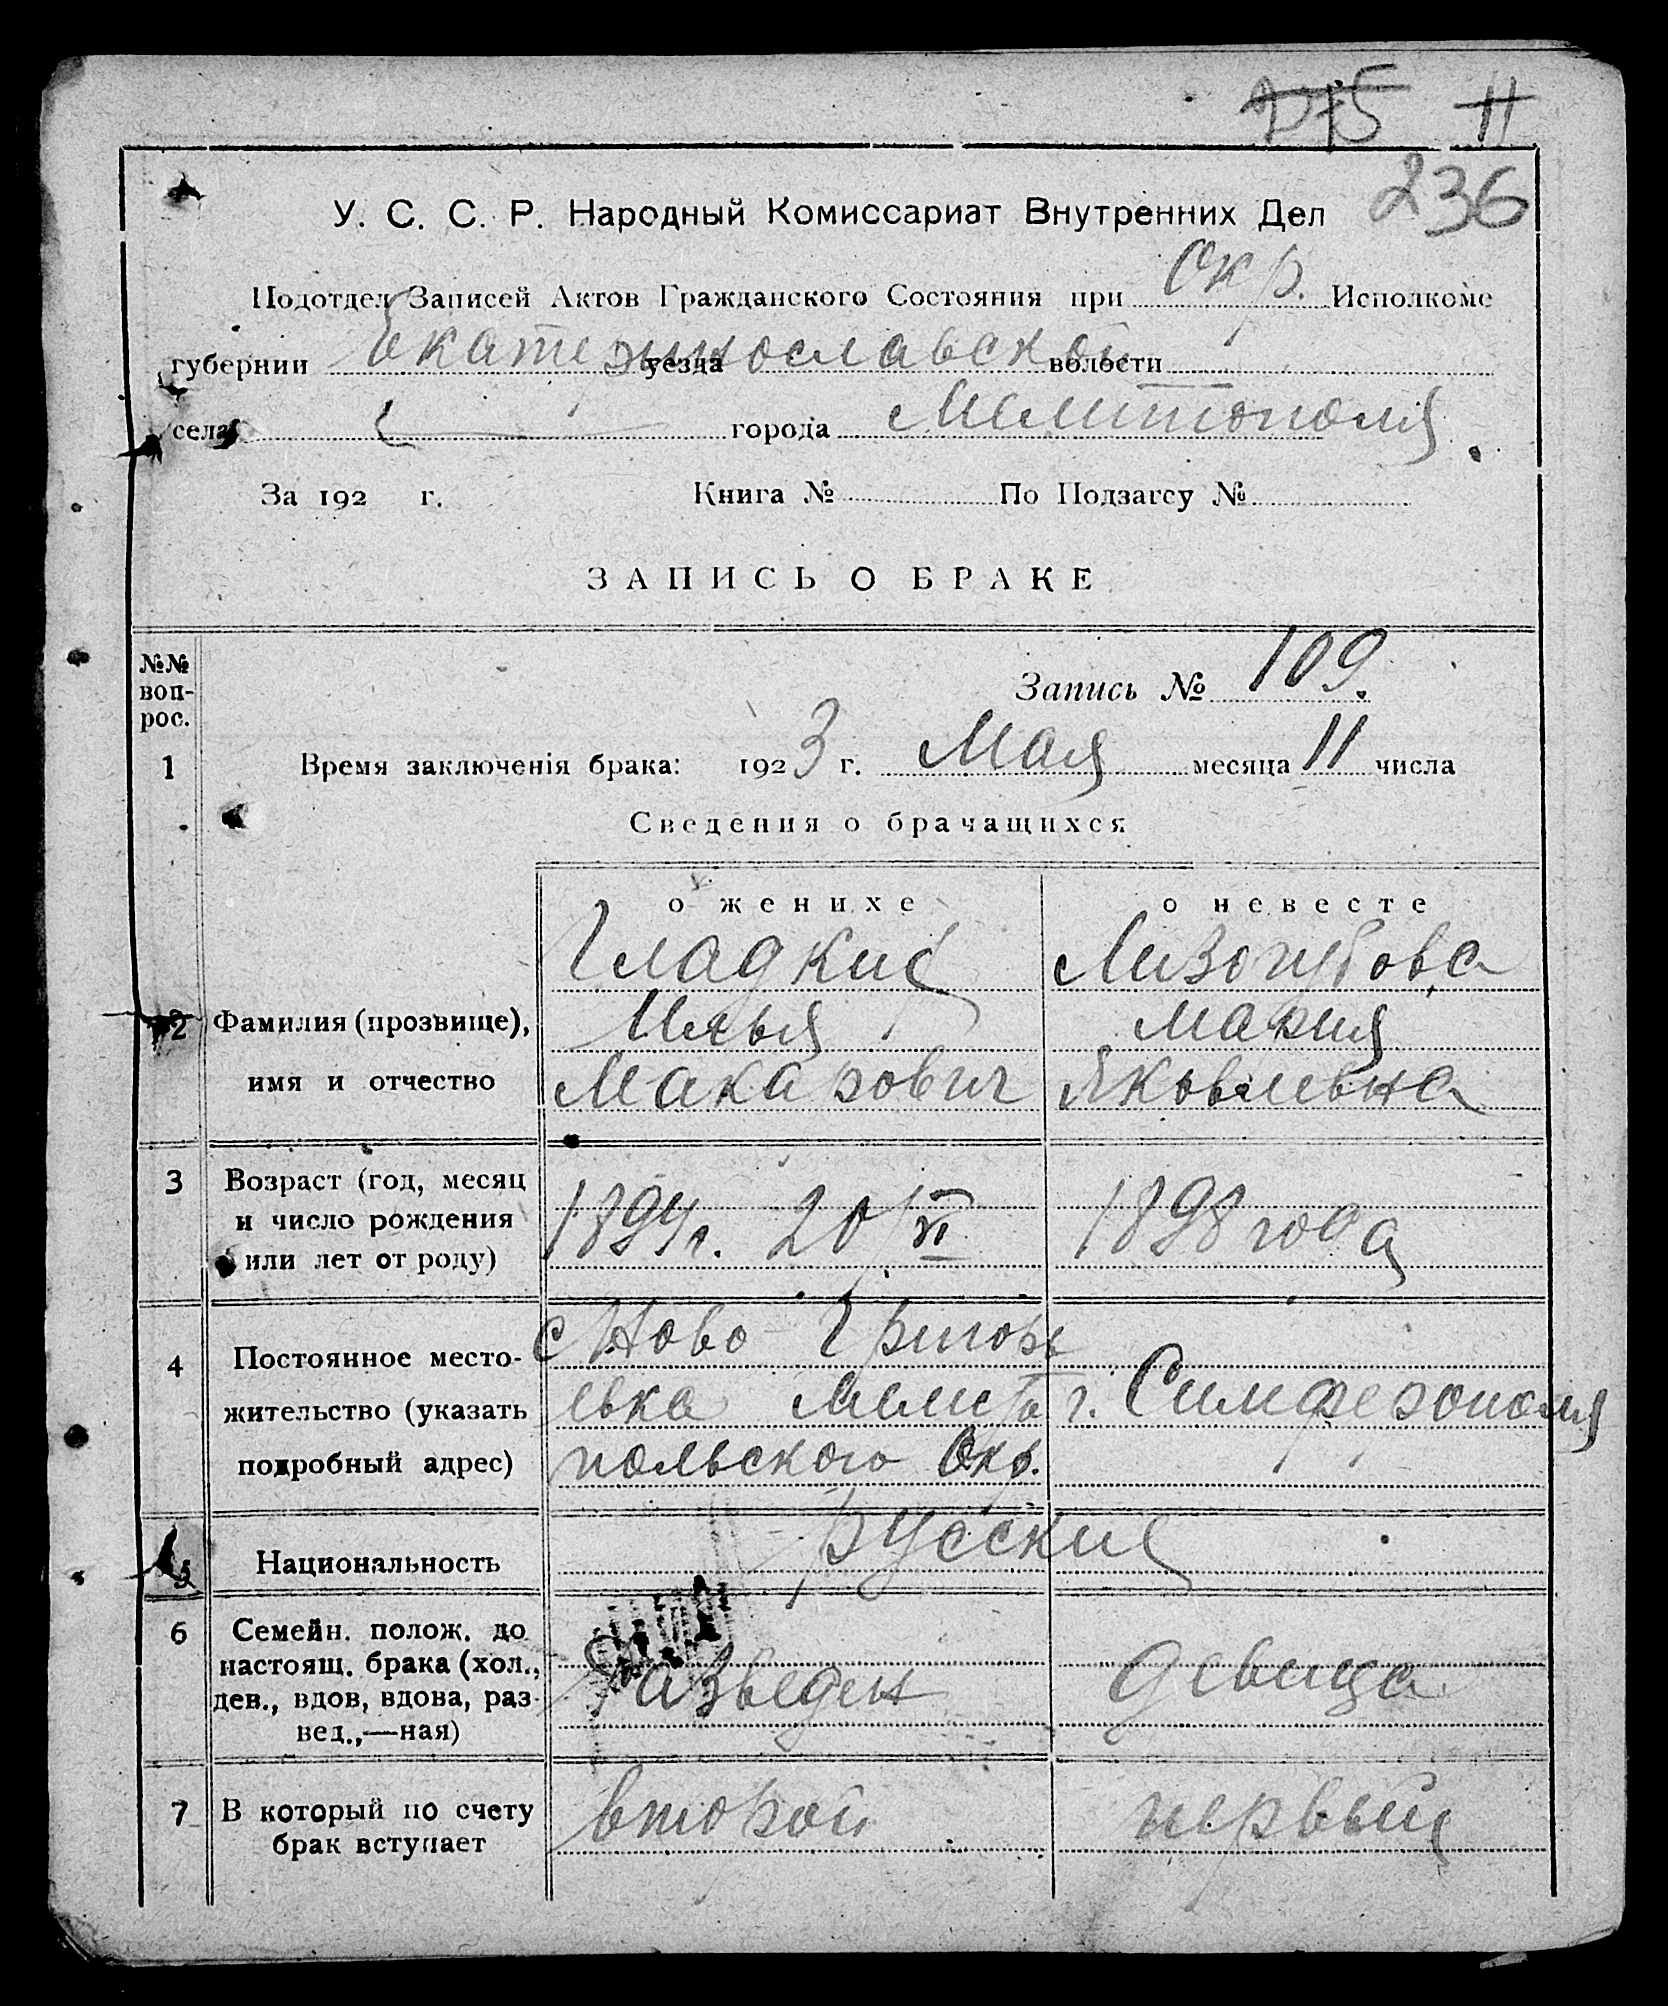 11
236
У. С. С. Р. Народный Комиссариат Внутренних Дел
Подотдел Записей Актов Гражданского Состояния при Окр. Исполкоме
губернии Екатеринославской уезда волости
села города Мелитополя
За 192 г. Книга № По Подзагсу №
ЗАПИСЬ О БРАКЕ
№№ воп-рос.
Запись № 109.
1 Время заключенія брака: 1923 г. Мая месяца 11 числа
Сведения о брачащихся
о женихе о невесте
Гладкий Лизогубова
Илья Мария
2 Фамилия (прозвище),
имя и отчество Макарович Яковлевна
3 Возраст (год, месяц
и число рождения 1894 г. 20/VI 1898 года
или лет от роду)
с Ново-Григорь
4 Постоянное место-
жительство (указать евка Мелито г. Симферополя
подробный адрес) польского Окр.
5 Национальность русский
6 Семейн. полож. до
настоящ. брака (хол.,
дев., вдов, вдова, раз- разведен девица
вед.,—ная)
7 В который по счету второй первый
брак вступает